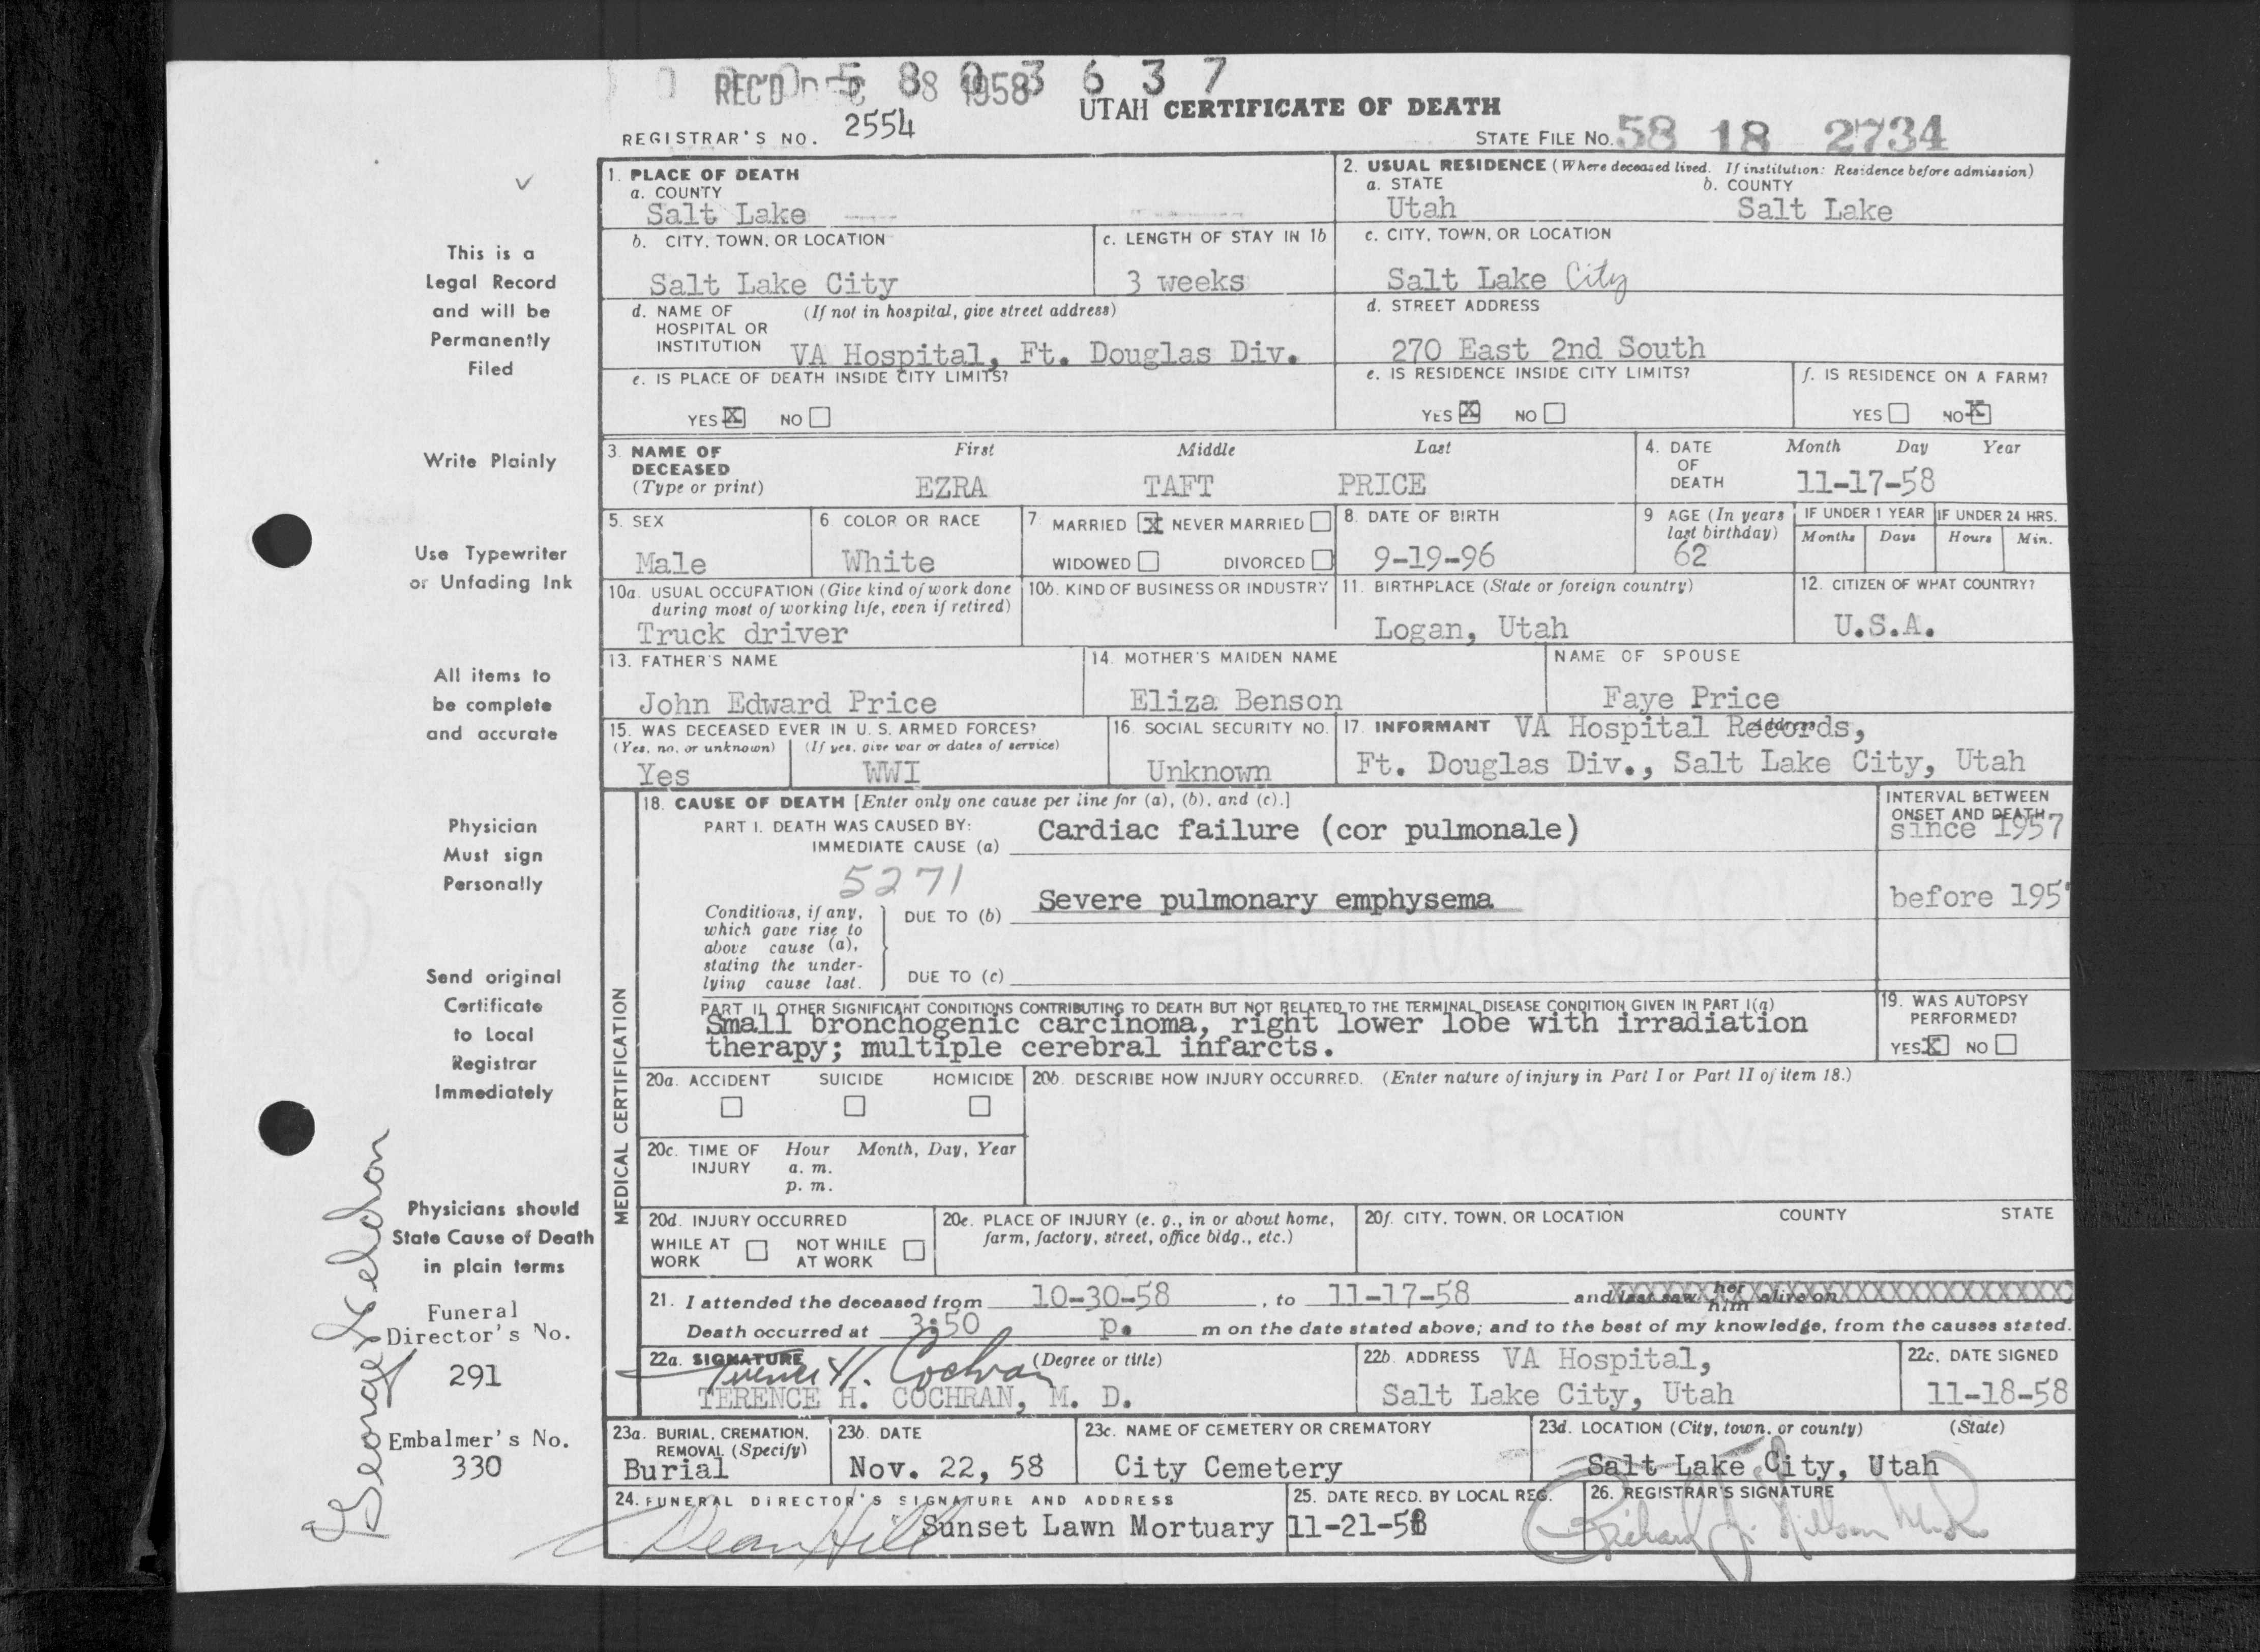 REC'D DEC 8 1958
5 8 0 3 6 3 7
UTAH CERTIFICATE OF DEATH
REGISTRAR'S NO. 2554
STATE FILE NO. 58 18 2734
This is a
Legal Record
and will be
Permanently
Filed
Write Plainly
Use Typewriter
or Unfading Ink
All items to
be complete
and accurate
Physician
Must sign
Personally
Send original
Certificate
to Local
Registrar
Immediately
Physicians should
State Cause of Death
in plain terms
Funeral
Director's No.
291
Embalmer's No.
330
1. PLACE OF DEATH
a. COUNTY
Salt Lake
2. USUAL RESIDENCE (Where deceased lived. If institution: Residence before admission)
a. STATE b. COUNTY
Utah Salt Lake
b. CITY, TOWN, OR LOCATION
Salt Lake City
c. LENGTH OF STAY IN 1b
3 weeks
c. CITY, TOWN, OR LOCATION
Salt Lake City
d. NAME OF (If not in hospital, give street address)
HOSPITAL OR
INSTITUTION VA Hospital, Ft. Douglas Div.
d. STREET ADDRESS
270 East 2nd South
e. IS PLACE OF DEATH INSIDE CITY LIMITS?
YES X NO
e. IS RESIDENCE INSIDE CITY LIMITS?
YES X NO
f. IS RESIDENCE ON A FARM?
YES NO X
3. NAME OF DECEASED (Type or print)
First Middle Last
EZRA TAFT PRICE
4. DATE OF DEATH Month Day Year
11-17-58
5. SEX
Male
6. COLOR OR RACE
White
7. MARRIED X NEVER MARRIED
WIDOWED DIVORCED
8. DATE OF BIRTH
9-19-96
9. AGE (In years last birthday)
62
IF UNDER 1 YEAR
Months Days
IF UNDER 24 HRS.
Hours Min.
10a. USUAL OCCUPATION (Give kind of work done
during most of working life, even if retired)
Truck driver
10b. KIND OF BUSINESS OR INDUSTRY
11. BIRTHPLACE (State or foreign country)
Logan, Utah
12. CITIZEN OF WHAT COUNTRY?
U.S.A.
13. FATHER'S NAME
John Edward Price
14. MOTHER'S MAIDEN NAME
Eliza Benson
NAME OF SPOUSE
Faye Price
15. WAS DECEASED EVER IN U. S. ARMED FORCES?
(Yes, no, or unknown) (If yes, give war or dates of service)
Yes WWI
16. SOCIAL SECURITY NO.
Unknown
17. INFORMANT Address
VA Hospital Records,
Ft. Douglas Div., Salt Lake City, Utah
MEDICAL CERTIFICATION
18. CAUSE OF DEATH [Enter only one cause per line for (a), (b), and (c).]
INTERVAL BETWEEN
ONSET AND DEATH
PART I. DEATH WAS CAUSED BY:
IMMEDIATE CAUSE (a) Cardiac failure (cor pulmonale)
since 1957
5271
Conditions, if any,
which gave rise to
above cause (a),
stating the under-
lying cause last.
DUE TO (b) Severe pulmonary emphysema
before 195
DUE TO (c)
PART II. OTHER SIGNIFICANT CONDITIONS CONTRIBUTING TO DEATH BUT NOT RELATED TO THE TERMINAL DISEASE CONDITION GIVEN IN PART I(a)
Small bronchogenic carcinoma, right lower lobe with irradiation
therapy; multiple cerebral infarcts.
19. WAS AUTOPSY
PERFORMED?
YES X NO
20a. ACCIDENT SUICIDE HOMICIDE
20b. DESCRIBE HOW INJURY OCCURRED. (Enter nature of injury in Part I or Part II of item 18.)
20c. TIME OF INJURY Hour Month, Day, Year
a. m.
p. m.
20d. INJURY OCCURRED
WHILE AT WORK NOT WHILE AT WORK
20e. PLACE OF INJURY (e. g., in or about home,
farm, factory, street, office bldg., etc.)
20f. CITY, TOWN, OR LOCATION COUNTY STATE
21. I attended the deceased from 10-30-58, to 11-17-58 and last saw her him alive on
Death occurred at 3:50 p. m on the date stated above; and to the best of my knowledge, from the causes stated.
22a. SIGNATURE (Degree or title)
Terence H. Cochran
TERENCE H. COCHRAN, M. D.
22b. ADDRESS VA Hospital,
Salt Lake City, Utah
22c. DATE SIGNED
11-18-58
23a. BURIAL, CREMATION,
REMOVAL (Specify)
Burial
23b. DATE
Nov. 22, 58
23c. NAME OF CEMETERY OR CREMATORY
City Cemetery
23d. LOCATION (City, town, or county) (State)
Salt Lake City, Utah
24. FUNERAL DIRECTOR'S SIGNATURE AND ADDRESS
Dean Hill Sunset Lawn Mortuary
25. DATE RECD. BY LOCAL REG.
11-21-58
26. REGISTRAR'S SIGNATURE